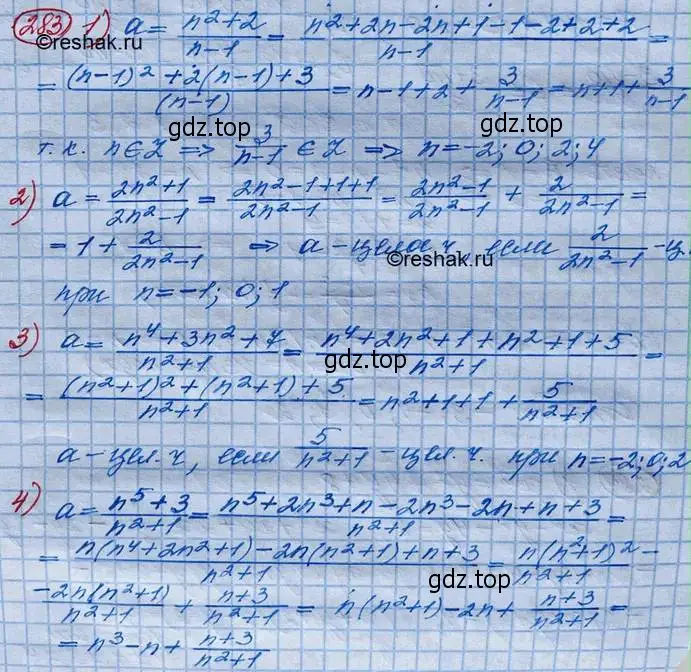 283 1) a = (n²+2)/(n-1) = (n²+2n-2n+1-1-2+2+2)/(n-1) =
©reshak.ru
= ((n-1)²+2(n-1)+3)/(n-1) = n-1+2+3/(n-1) = n+1+3/(n-1)
gdz.top gdz.top
т.к. n∈Z ⇒ 3/(n-1) ∈ Z ⇒ n=-2; 0; 2; 4
2) a = (2n²+1)/(2n²-1) = (2n²-1+1+1)/(2n²-1) = (2n²-1)/(2n²-1) + 2/(2n²-1) =
= 1 + 2/(2n²-1) ⇒ a - целое ч если 2/(2n²-1) - ц.
©reshak.ru
при n=-1; 0; 1
3) a = (n⁴+3n²+7)/(n²+1) = (n⁴+2n²+1+n²+1+5)/(n²+1) =
gdz.top
= ((n²+1)²+(n²+1)+5)/(n²+1) = n²+1+1+5/(n²+1)
a - цел.ч, если 5/(n²+1) - цел.ч. при n=-2; 0; 2
4) a = (n⁵+3)/(n²+1) = (n⁵+2n³+n-2n³-2n+n+3)/(n²+1) =
= (n(n⁴+2n²+1)-2n(n²+1)+n+3)/(n²+1) = n(n²+1)²/(n²+1) -
gdz.top
-2n(n²+1)/(n²+1) + (n+3)/(n²+1) = n(n²+1)-2n+(n+3)/(n²+1) =
= n³-n+(n+3)/(n²+1)